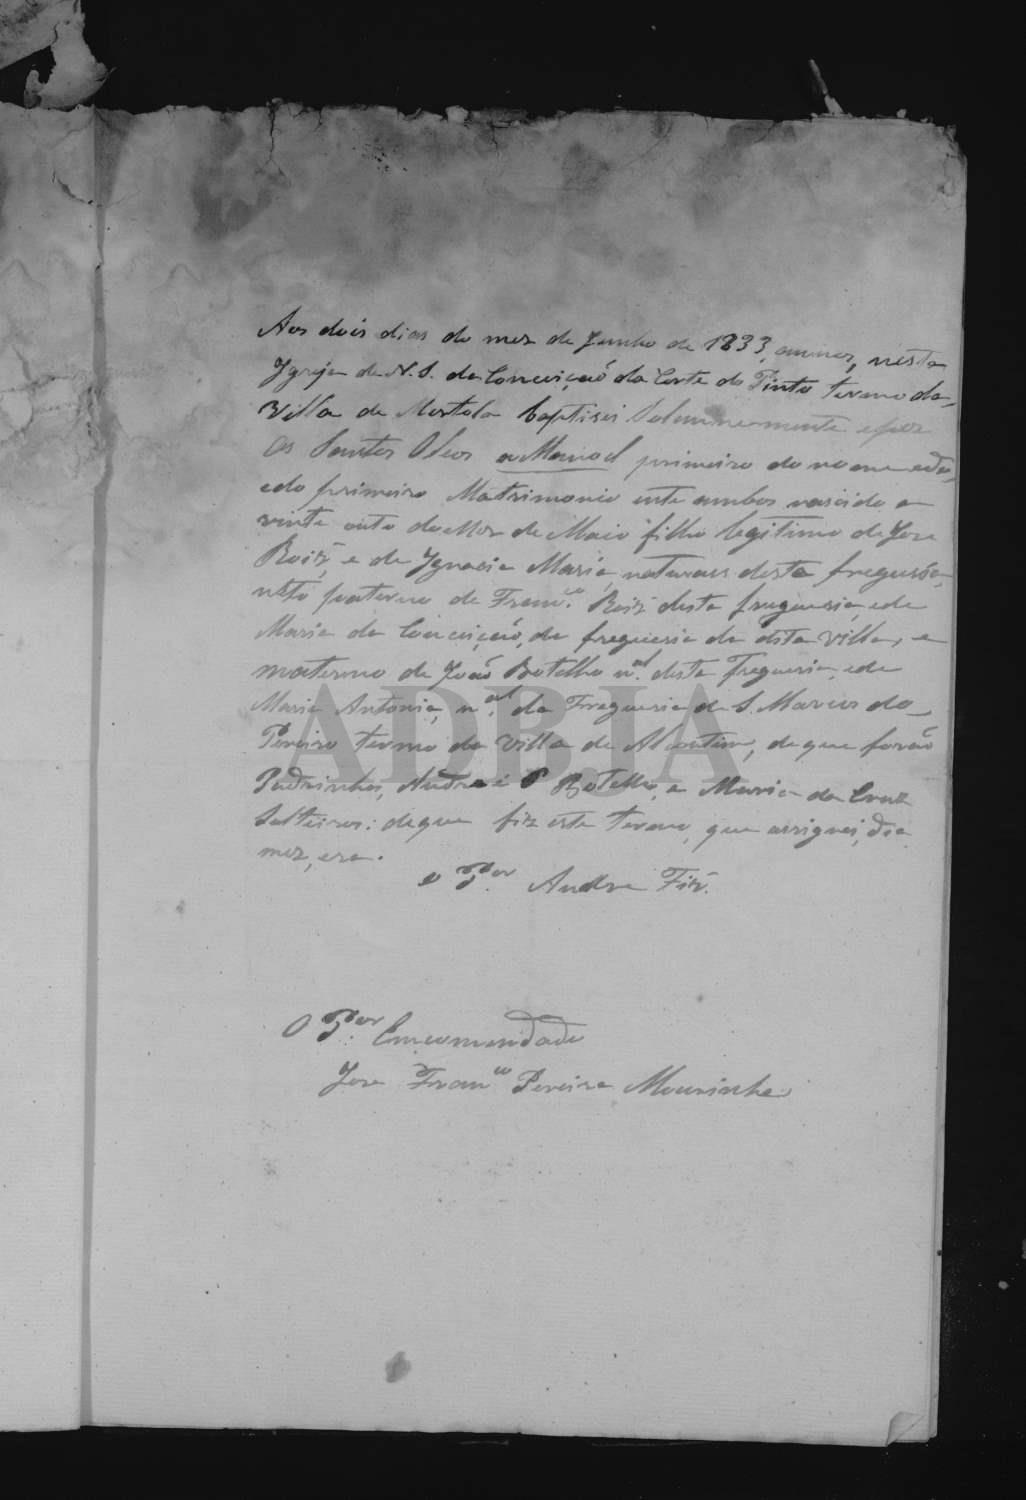 Aos dois dias do mez de Junho de 1833, annos, nesta
Igreja de N. S. da Conceição da Corte do Pinto termo da
Villa de Mertola baptisei Solemnemente e puz
Os Santos Oleos a Manoel primeiro do nome e do
e do primeiro Matrimonio entre ambos nascido a
vinte outo do Mez de Maio filho legitimo de Joze
Roiz, e de Ignacia Maria naturaes desta freguesia,
neto paterno de Franco. Roiz desta freguesia, e de
Maria da Conceição, da freguesia da dita villa, e
materno de João Botelho nal. desta Freguesia, e de
Maria Antonia, nal. da Freguesia de S. Marcos do
Pereiro termo da Villa de Alcoutim, de que forão
Padrinhos, Andre Botelho, e Maria da Cruz
Solteiros: de que fiz este termo, que assignei, dia
mez, era.
o Por. Andre Fiz.
O Por. Emcomendado
Joze Franco Pereira Mourinho
ADBJA